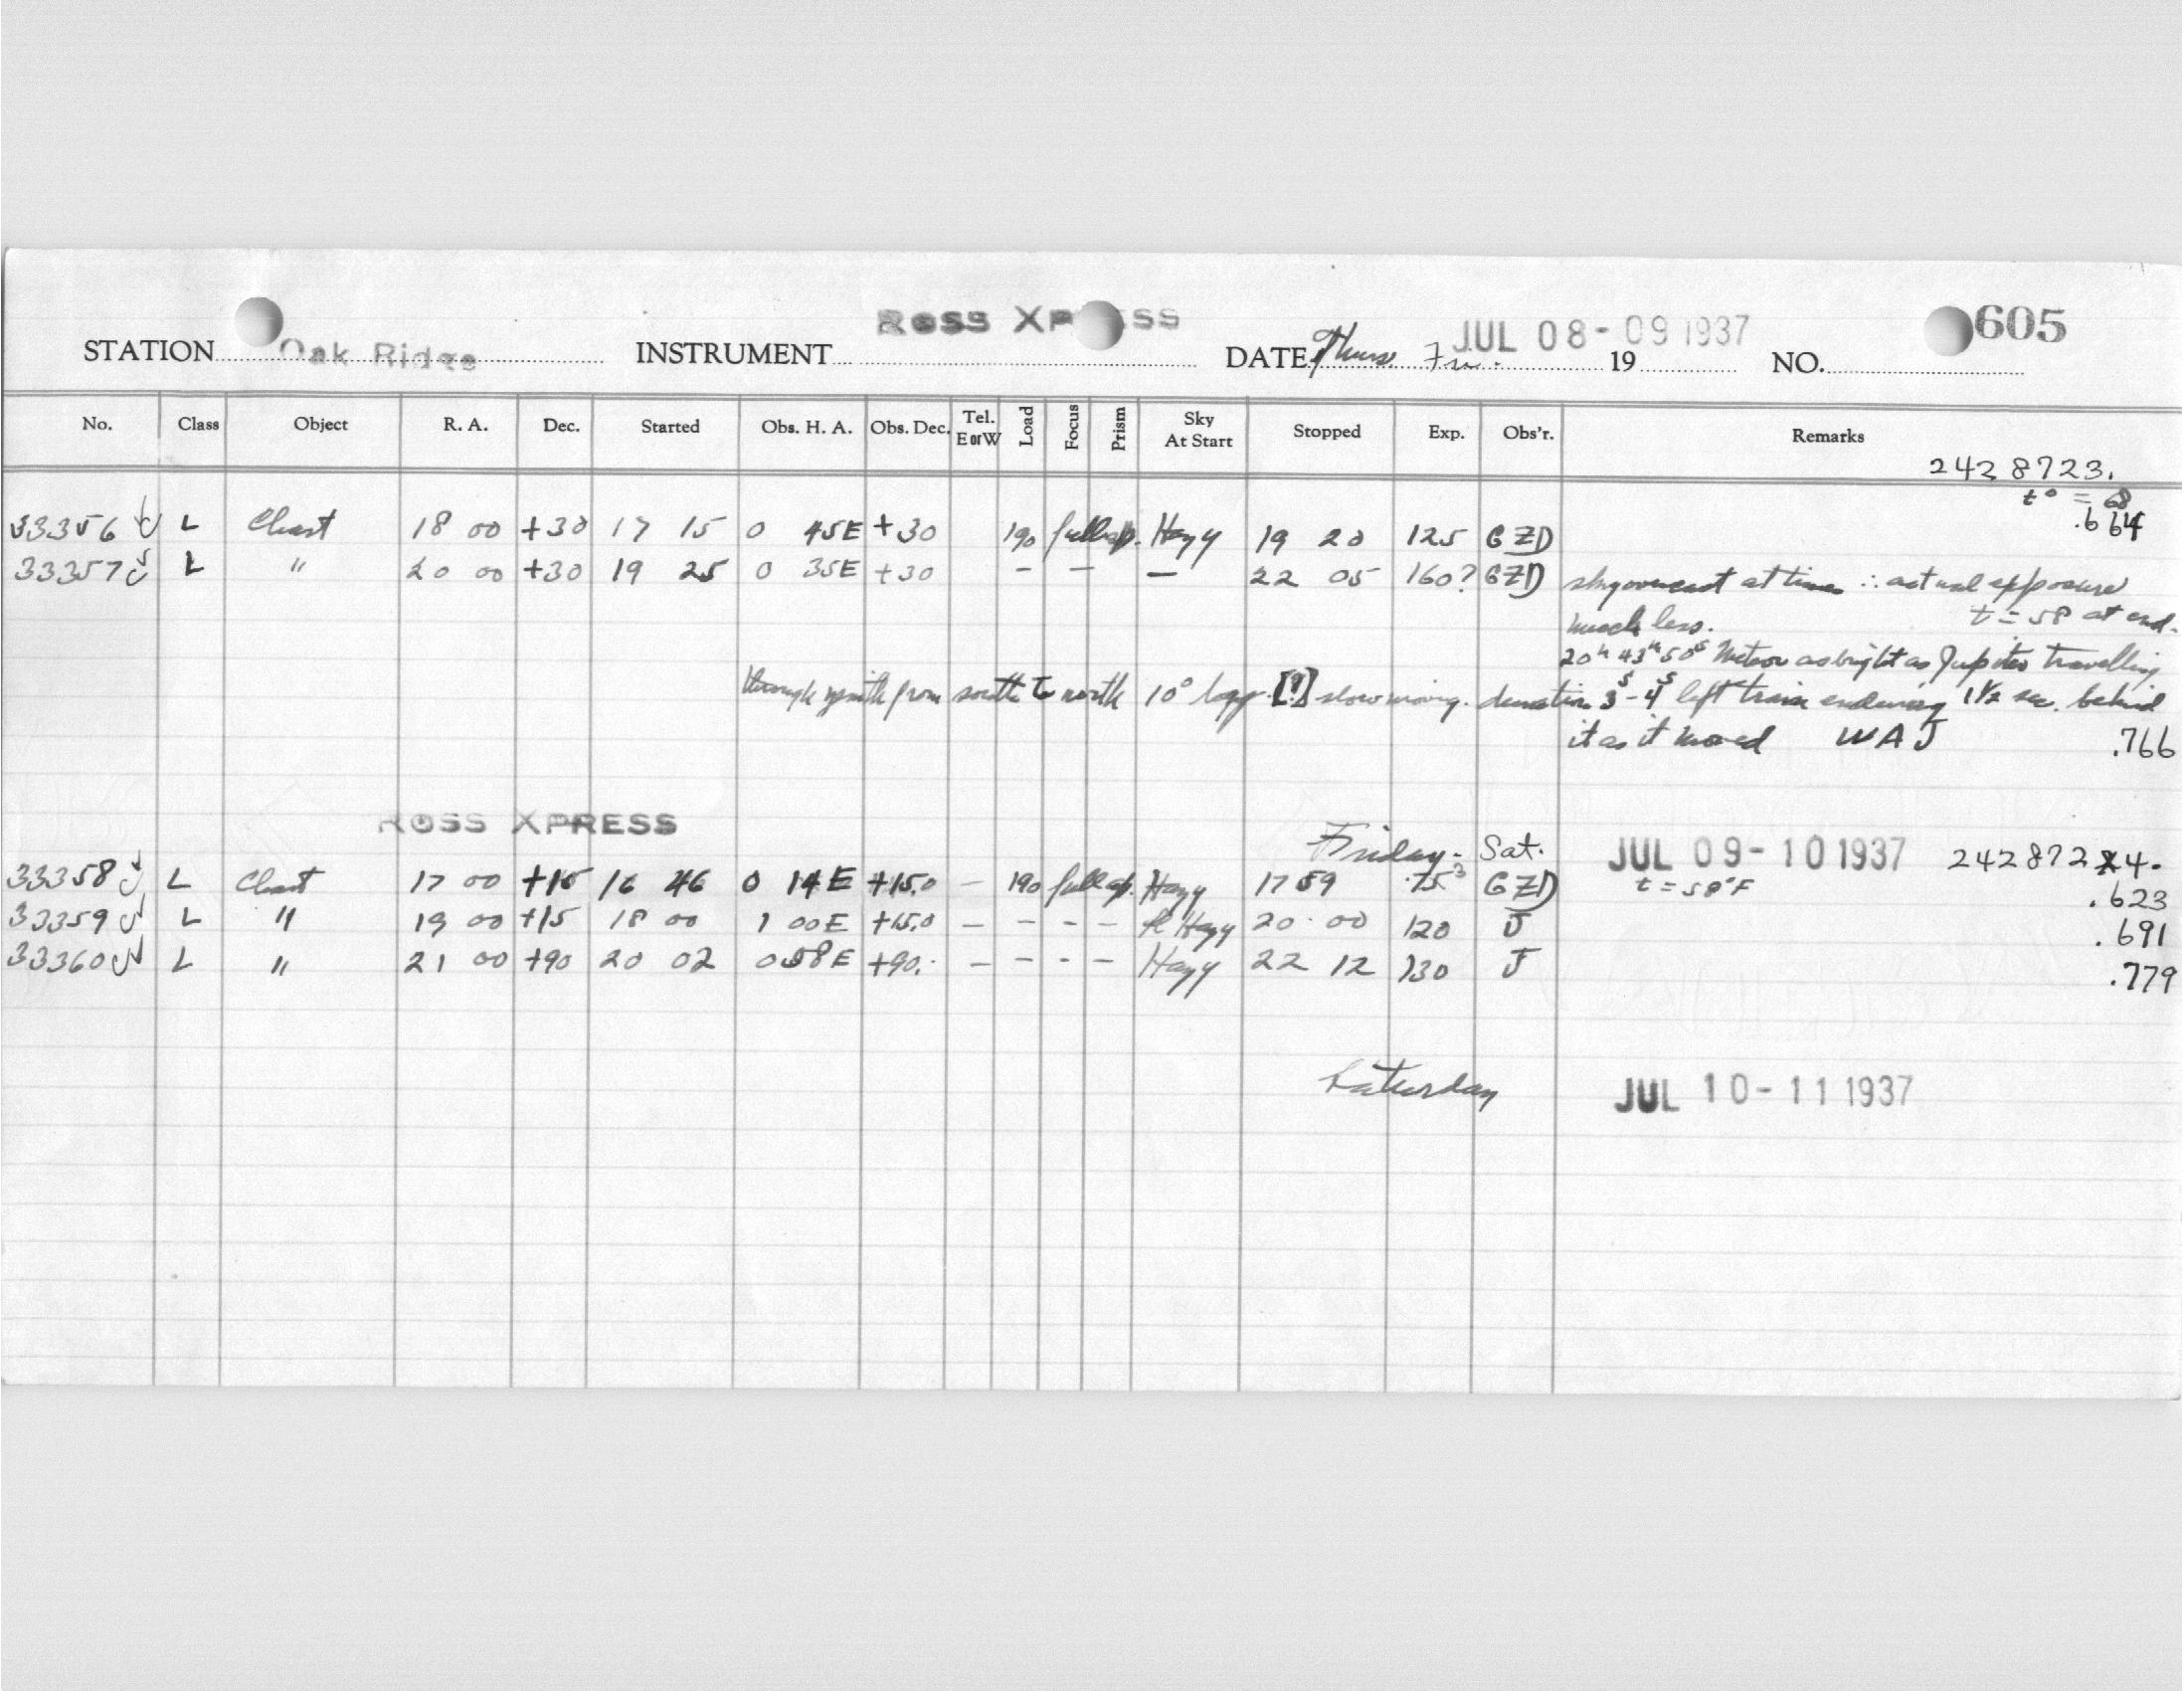 STATION Oak Ridge INSTRUMENT ROSS XPRESS DATE Thurs. Fri. JUL 08-09 1937 19 NO. 605
No. Class Object R. A. Dec. Started Obs. H. A. Obs. Dec. Tel. E or W Load Focus Prism Sky At Start Stopped Exp. Obs'r. Remarks
2428723.
t° =
33356 L Chart 18 00 +30 17 15 0 45E +30 190 full ap. Hazy 19 20 125 GZD .664
33357 L " 20 00 +30 19 25 0 35E +30 – – – 22 05 160? GZD sky overcast at times ∴ actual exposure
much less. t = 58 at end.
20h 43m 50s Meteor as bright as Jupiter travelling
through zenith from south to north 10° long [?] slow moving. duration 3s-4s left train enduring 1½ sec. behind
it as it moved WAJ .766
ROSS XPRESS Friday - Sat. JUL 09-10 1937 2428724.
33358 L Chart 17 00 +15 16 46 0 14E +15.0 – 190 full ap. Hazy 17 59 GZD t = 58°F .623
33359 L " 19 00 +15 18 00 1 00E +15.0 – – – – Hazy 20 00 120 J .691
33360 L " 21 00 +90 20 02 0 58E +90. – – – – Hazy 22 12 130 J .779
Saturday JUL 10-11 1937